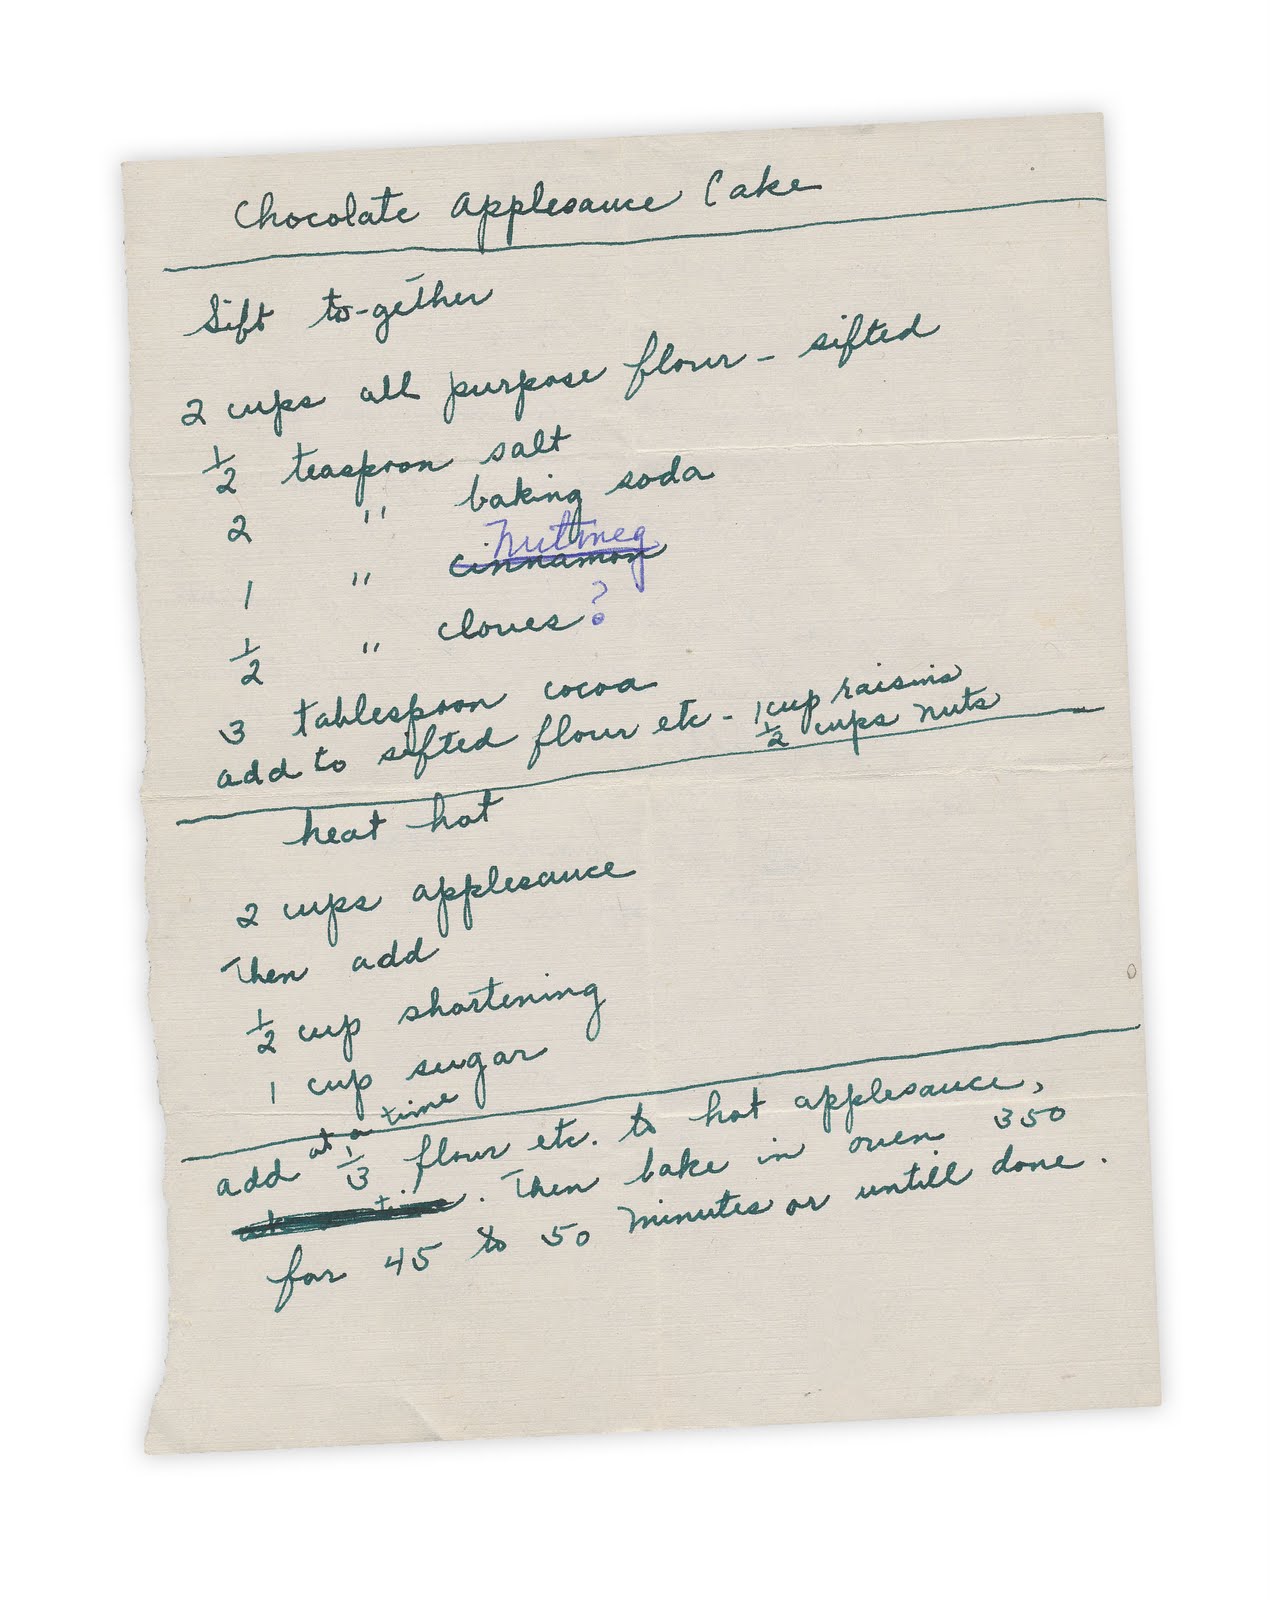 Chocolate Applesauce Cake
Sift to-gether
2 cups all purpose flour - sifted
1/2 teaspoon salt
2 " baking soda
nutmeg
1 " cinnamon
1/2 " cloves ?
3 tablespoon cocoa
add to sifted flour etc - 1 cup raisins
1/2 cups nuts
heat hot
2 cups applesauce
Then add
1/2 cup shortening
1 cup sugar
at a time
add 1/3 flour etc. to hot applesauce,
. Then bake in oven 350
for 45 to 50 minutes or untill done.